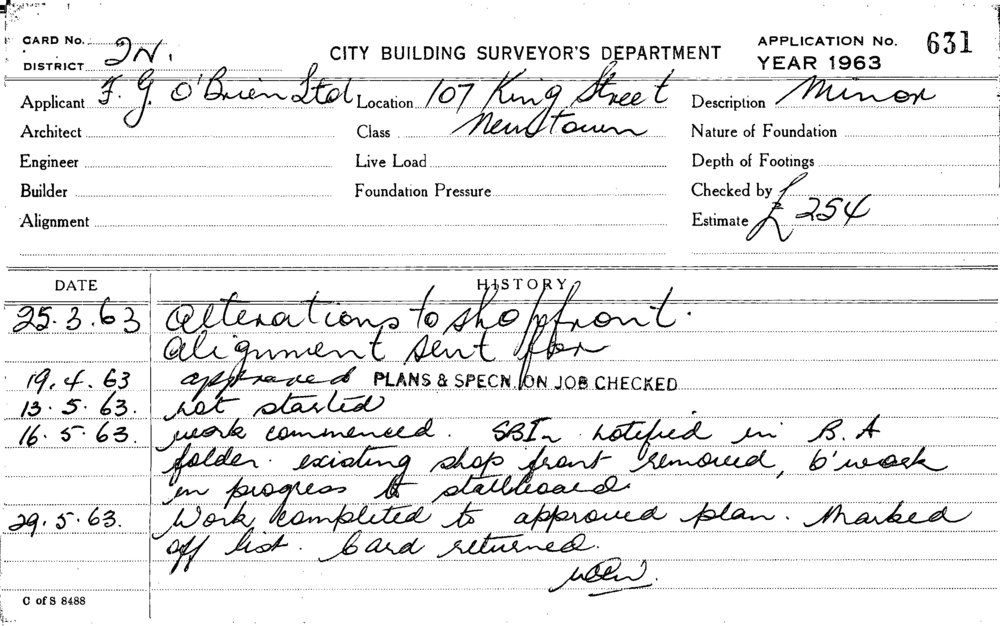 CARD No.
DISTRICT 2N.
CITY BUILDING SURVEYOR'S DEPARTMENT
APPLICATION No. 631
YEAR 1963
Applicant F. G. O'Brien Ltd Location 107 King Street Description Minor
Architect Class Newtown Nature of Foundation
Engineer Live Load Depth of Footings
Builder Foundation Pressure Checked by
Alignment Estimate £254
DATE HISTORY
25.3.63 Alterations to shopfront.
Alignment sent for
19.4.63 approved PLANS & SPECN. ON JOB CHECKED
13.5.63. not started
16.5.63. work commenced. SBI notified in B.A
folder. existing shop front removed, b'work
in progress to stallboard
29.5.63. Work completed to approved plan. Marked
off list. Card returned.
C of S 8488